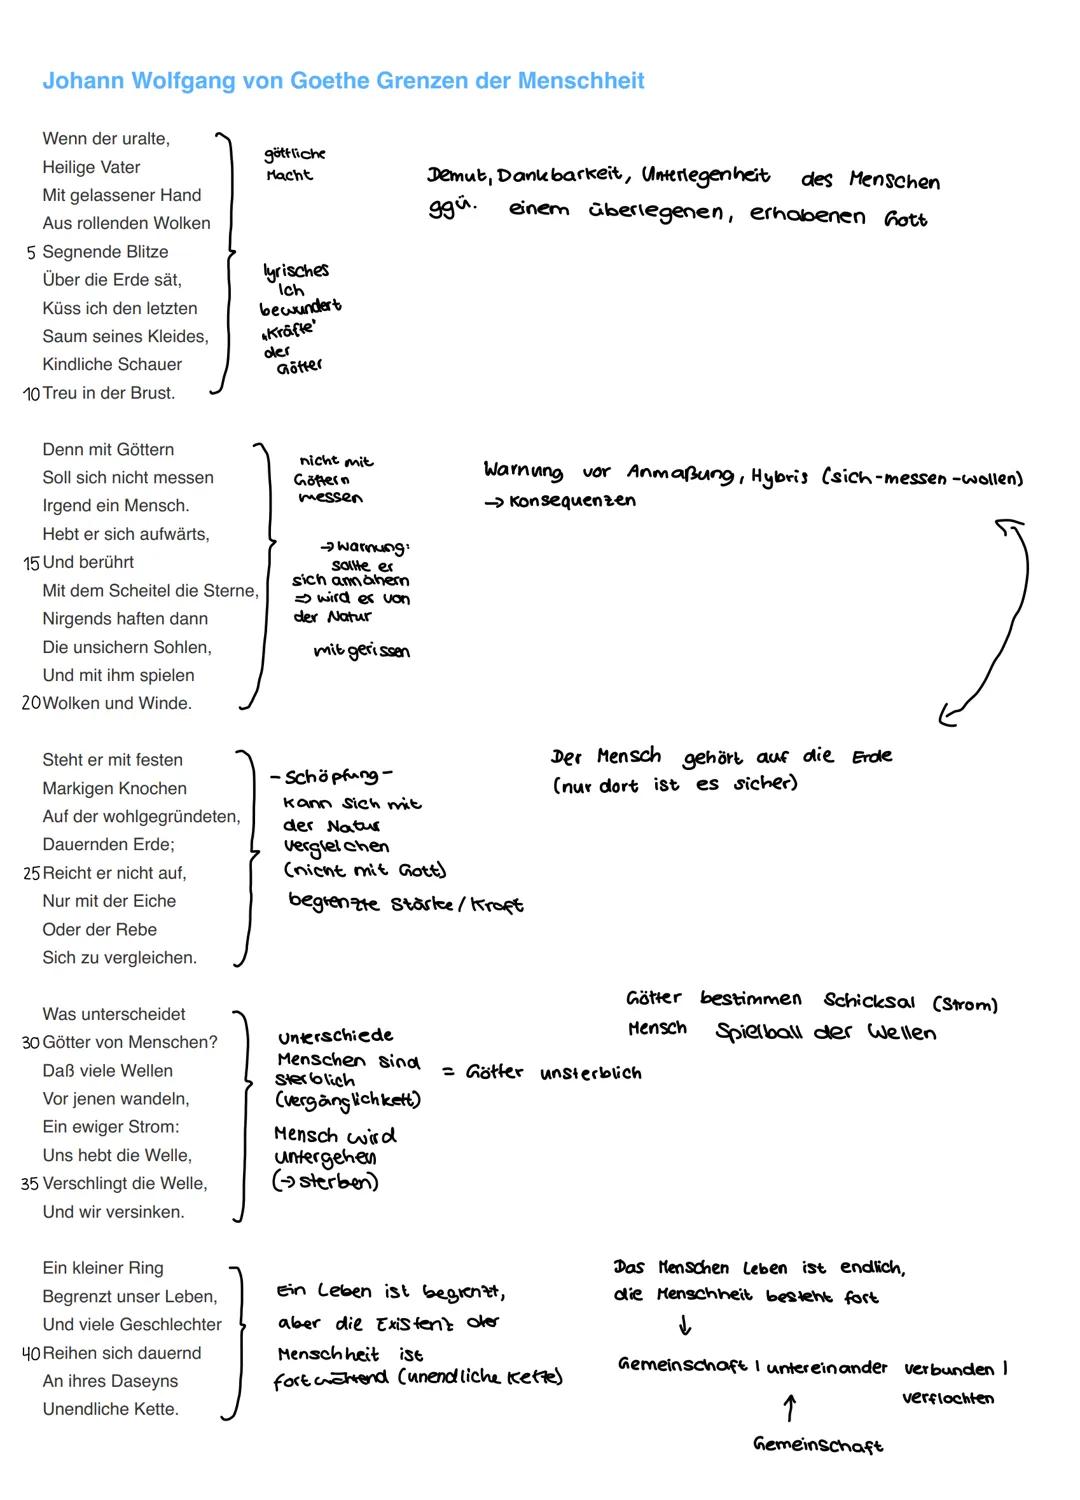 Johann Wolfgang von Goethe Grenzen der Menschheit
Wenn der uralte,
Heilige Vater
Mit gelassener Hand
Aus rollenden Wolken
5 Segnende Blitze
Über die Erde sät,
Küss ich den letzten
Saum seines Kleides,
Kindliche Schauer
10 Treu in der Brust.
göttliche
Macht
lyrisches
Ich
bewundert
„Kräfte"
der
Götter
Demut, Dankbarkeit, Unterlegenheit des Menschen
ggü. einem überlegenen, erhobenen Gott
Denn mit Göttern
Soll sich nicht messen
Irgend ein Mensch.
Hebt er sich aufwärts,
15 Und berührt
Mit dem Scheitel die Sterne,
Nirgends haften dann
Die unsichern Sohlen,
Und mit ihm spielen
20 Wolken und Winde.
nicht mit
Göttern
messen
→ Warnung:
sollte er
sich annähern
⇒ wird er von
der Natur
mitgerissen
Warnung vor Anmaßung, Hybris (sich-messen-wollen)
→ Konsequenzen
Steht er mit festen
Markigen Knochen
Auf der wohlgegründeten,
Dauernden Erde;
25 Reicht er nicht auf,
Nur mit der Eiche
Oder der Rebe
Sich zu vergleichen.
- Schöpfung -
kann sich mit
der Natur
vergleichen
(nicht mit Gott)
begrenzte Stärke / Kraft
Der Mensch gehört auf die Erde
(nur dort ist es sicher)
Was unterscheidet
30 Götter von Menschen?
Daß viele Wellen
Vor jenen wandeln,
Ein ewiger Strom:
Uns hebt die Welle,
35 Verschlingt die Welle,
Und wir versinken.
Unterschiede
Menschen sind
sterblich
(vergänglichkeit)
= Götter unsterblich
Mensch wird
untergehen
(→ sterben)
Götter bestimmen Schicksal (Strom)
Mensch Spielball der Wellen
Ein kleiner Ring
Begrenzt unser Leben,
Und viele Geschlechter
40 Reihen sich dauernd
An ihres Daseyns
Unendliche Kette.
Ein Leben ist begrenzt,
aber die Existenz der
Menschheit ist
fortwährend (unendliche Kette)
Das Menschen Leben ist endlich,
die Menschheit besteht fort
↓
Gemeinschaft | untereinander verbunden |
verflochten
↑
Gemeinschaft